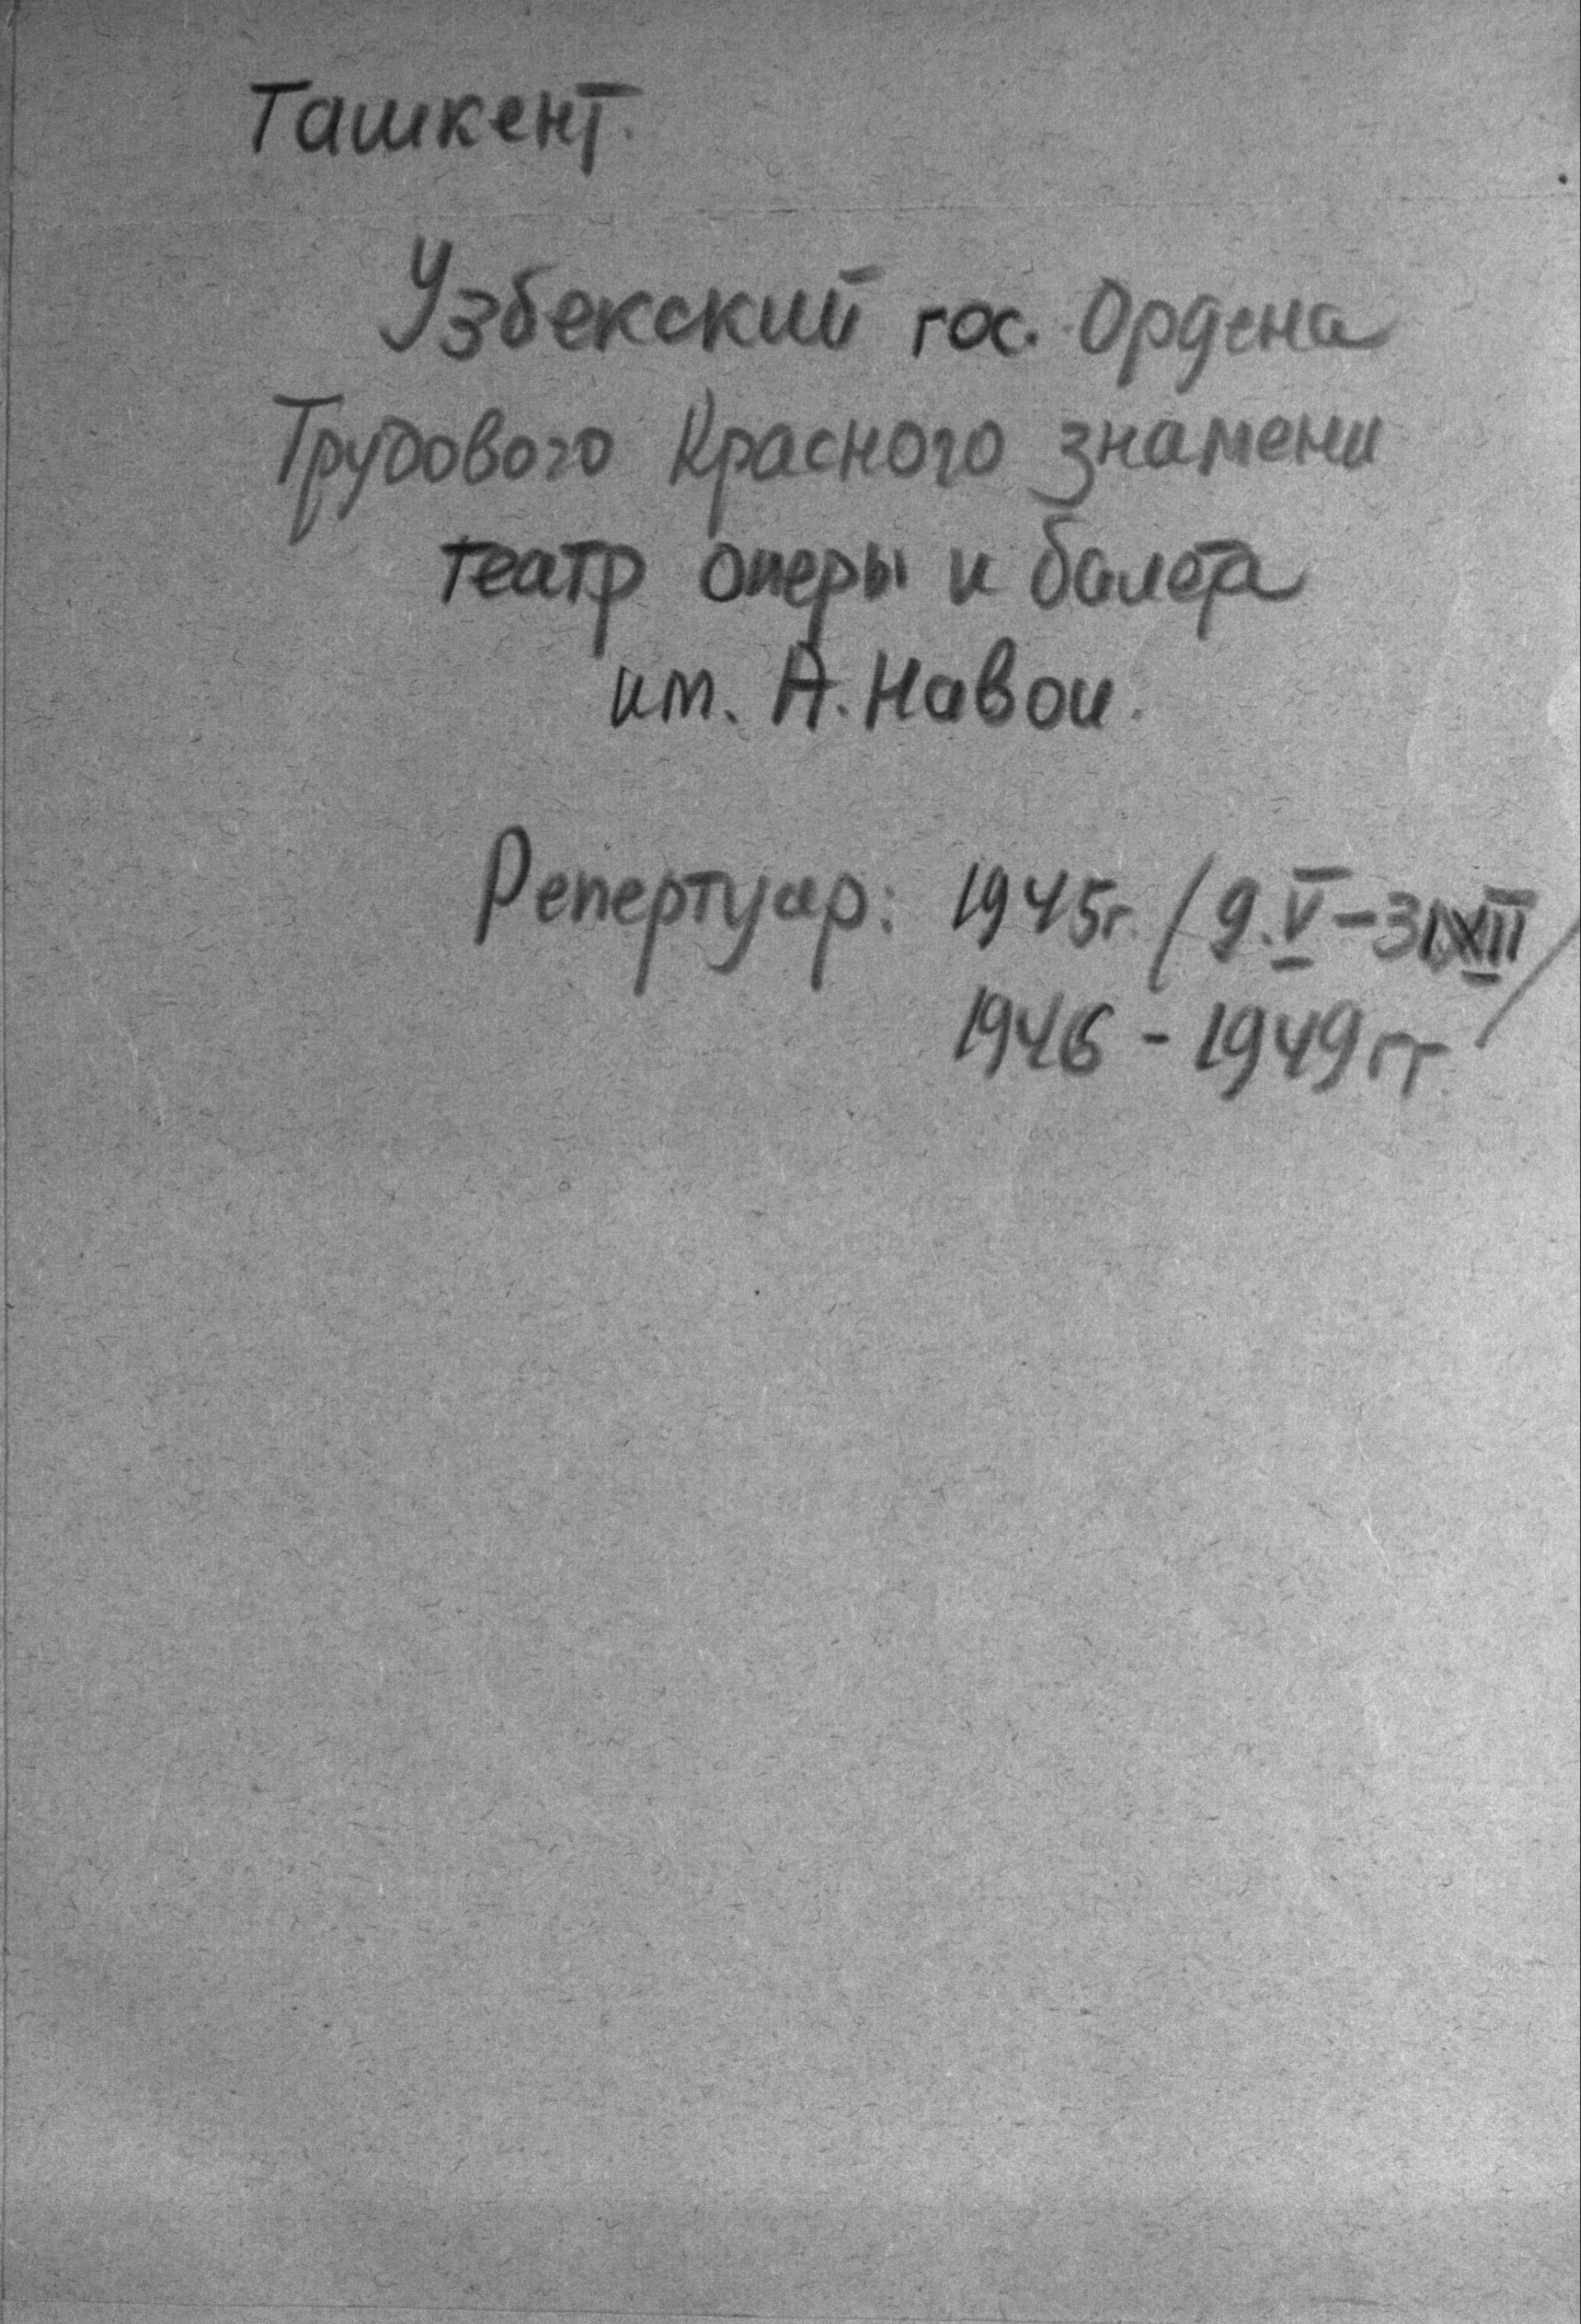 Ташкент.
Узбекский гос. Ордена
Трудового Красного знамени
театр оперы и балета
им. А. Навои.
Репертуар: 1945г. / 9.V – 31.XII /
1946 - 1949 гг